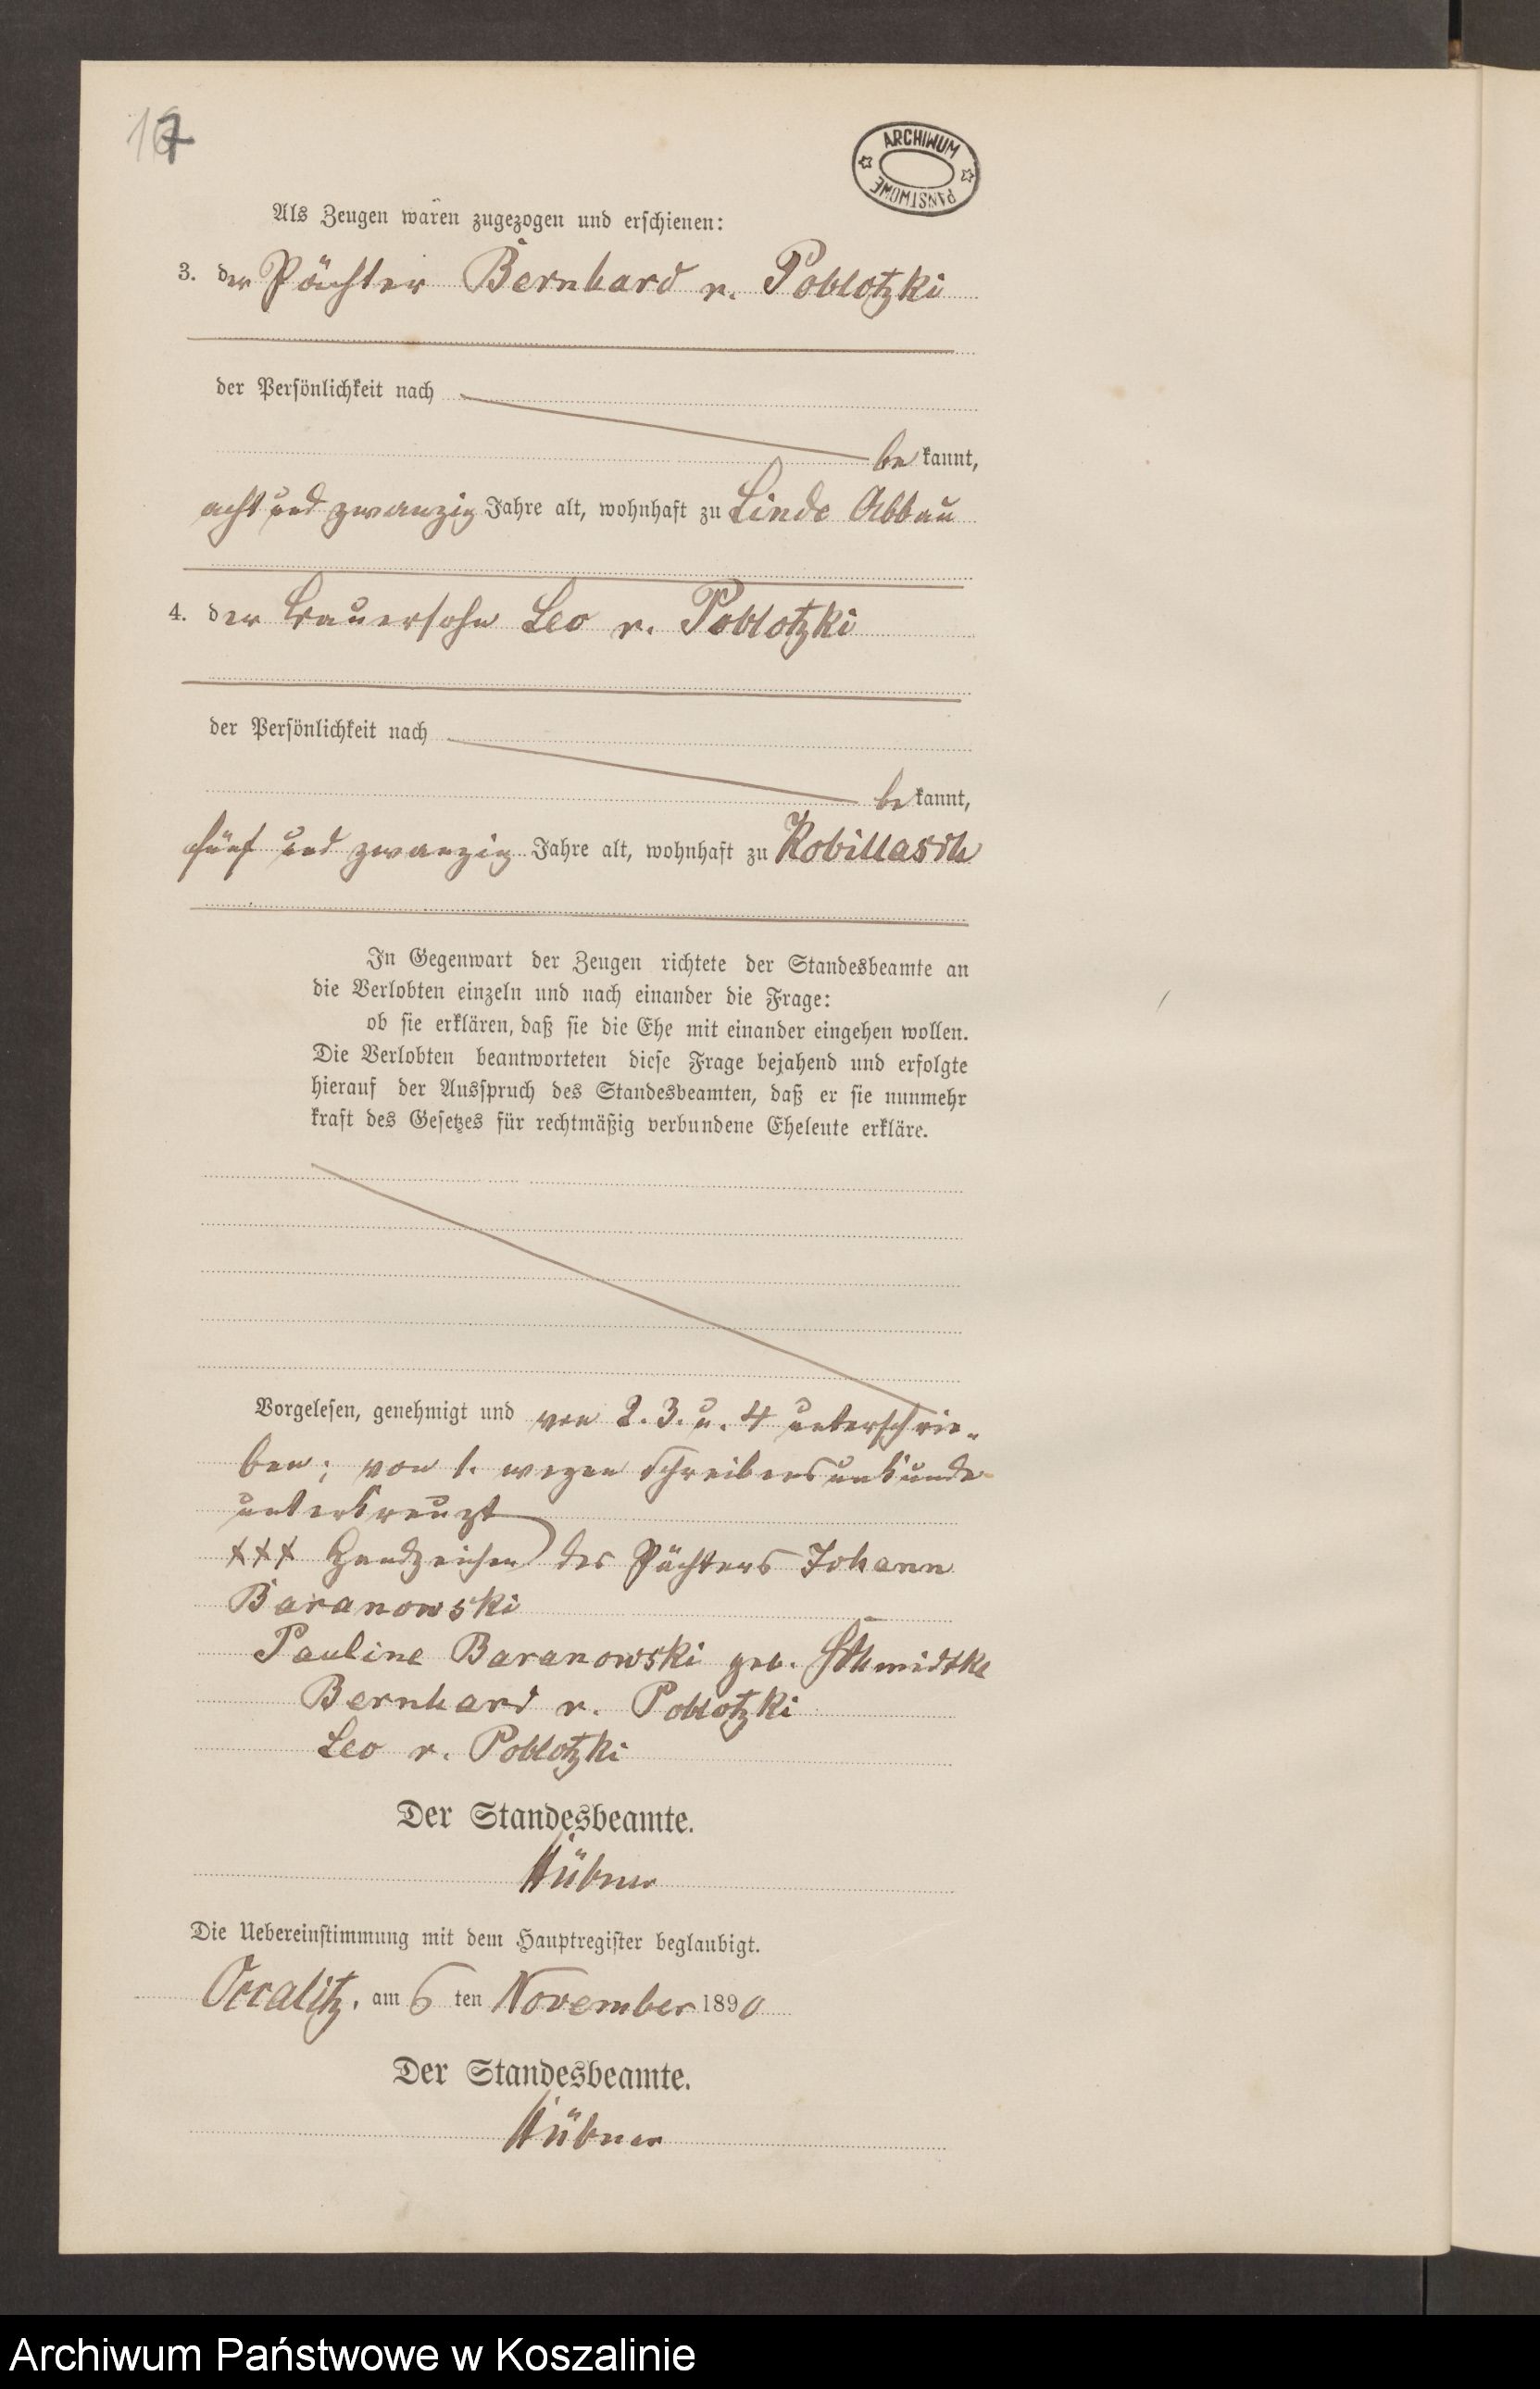 ARCHIWUM
PAŃSTWOWE
Als Zeugen waren zugezogen und erschienen:
3. der Pächter Bernhard v. Poblotzki
der Persönlichkeit nach
be kannt,
acht und zwanzig Jahre alt, wohnhaft zu Linde Abbau
4. der Bauersohn Leo v. Poblotzki
der Persönlichkeit nach
be kannt,
fünf und zwanzig Jahre alt, wohnhaft zu Robillasch
In Gegenwart der Zeugen richtete der Standesbeamte an
die Verlobten einzeln und nach einander die Frage:
ob sie erklären, daß sie die Ehe mit einander eingehen wollen.
Die Verlobten beantworteten diese Frage bejahend und erfolgte
hierauf der Ausspruch des Standesbeamten, daß er sie nunmehr
kraft des Gesetzes für rechtmäßig verbundene Eheleute erkläre.
Vorgelesen, genehmigt und von 2. 3. u. 4 unterschrie-
ben; von 1. wegen Schreibensunkunde
unterkreuzt
+++ Handzeichen des Pächters Johann
Baranowski
Pauline Baranowski geb. Schmidtke
Bernhard v. Poblotzki
Leo v. Poblotzki
Der Standesbeamte.
Hübner
Die Uebereinstimmung mit dem Hauptregister beglaubigt.
Occalitz, am 6 ten November 1890
Der Standesbeamte.
Hübner
Archiwum Państwowe w Koszalinie